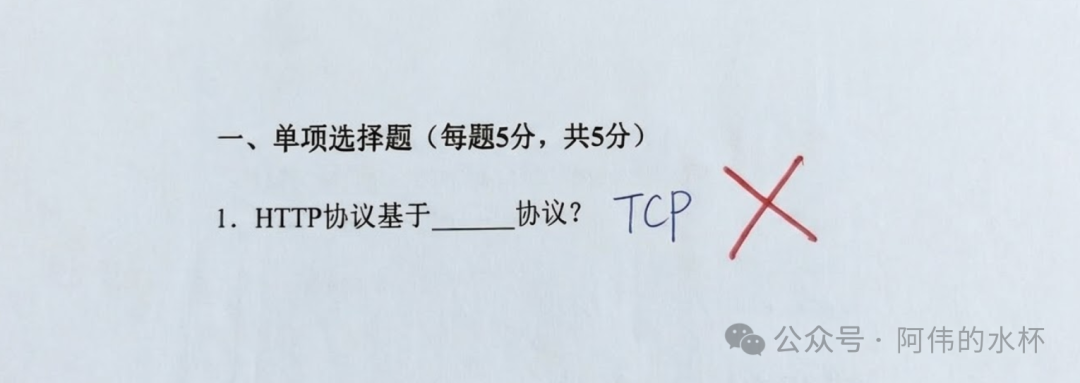 一、单项选择题（每题5分，共5分）
1. HTTP协议基于______协议？ TCP
公众号 · 阿伟的水杯